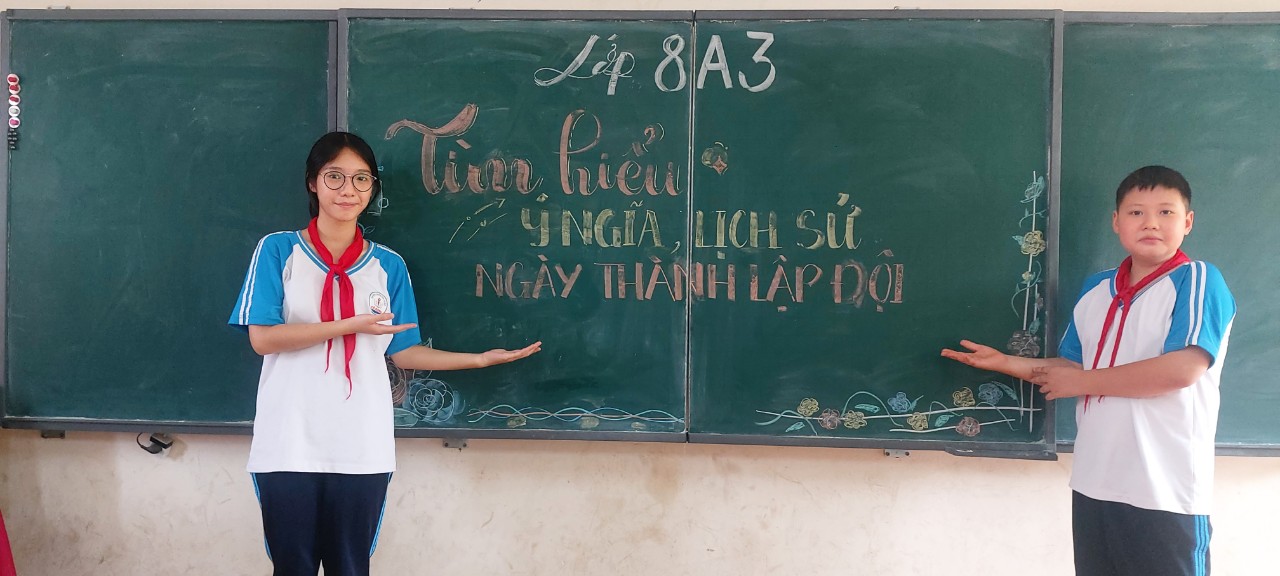 Lớp 8A3
Tìm hiểu
Ý NGĨA, LỊCH SỬ
NGÀY THÀNH LẬP ĐỘI